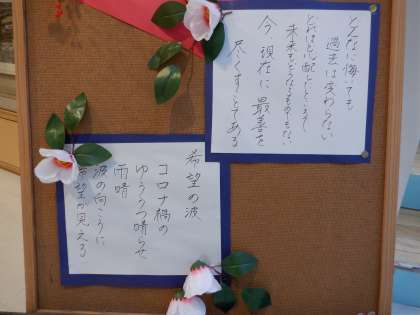 どんなに悔いても
過去は変わらない
どれほど心配したところで
未来もどうなるものでもない
今、現在に最善を
尽くすことである
希望の波
コロナ禍の
ゆううつ晴らせ
雨晴
波の向こうに
希望が見える